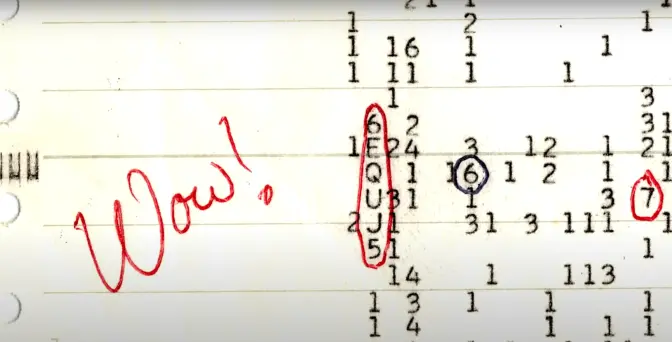 2 1 1
1 2 1
1 16 1 1
1 11 1 1
1 3
6 2 31
1E24 3 12 1 21
Q 1 16 1 2 1 1
U31 1 3 7
2J1 31 3 111 1
51 1
14 1 113
1 3 1 1 1
1 4 1 1 1
Wow!